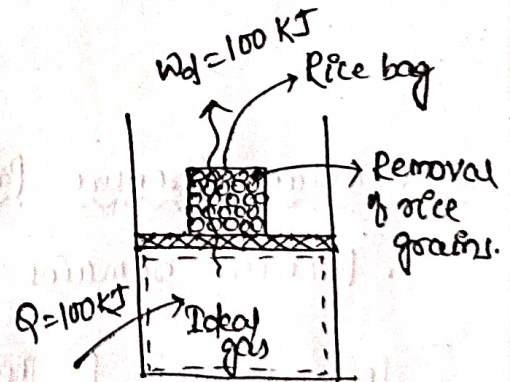 Wd = 100 KJ
Rice bag
Removal
of rice
grains.
Q = 100 KJ
Ideal
gas